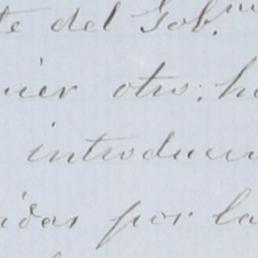 te del Gob.no
uier otro; ha
introducen
idas por la